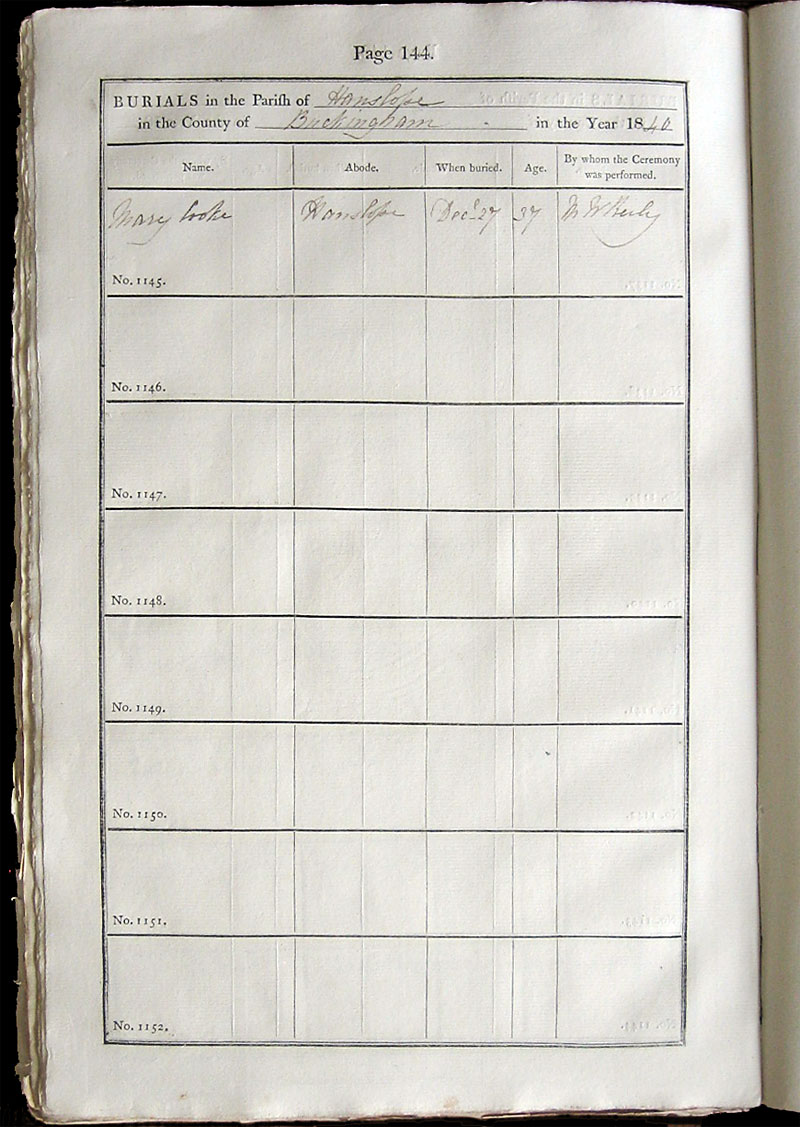 Page 144.
BURIALS in the Parish of Hanslope
in the County of Buckingham in the Year 1840
Name. Abode. When buried. Age. By whom the Ceremony was performed.
Mary Cooke Hanslope Decr. 27 37
No. 1145.
No. 1146.
No. 1147.
No. 1148.
No. 1149.
No. 1150.
No. 1151.
No. 1152.